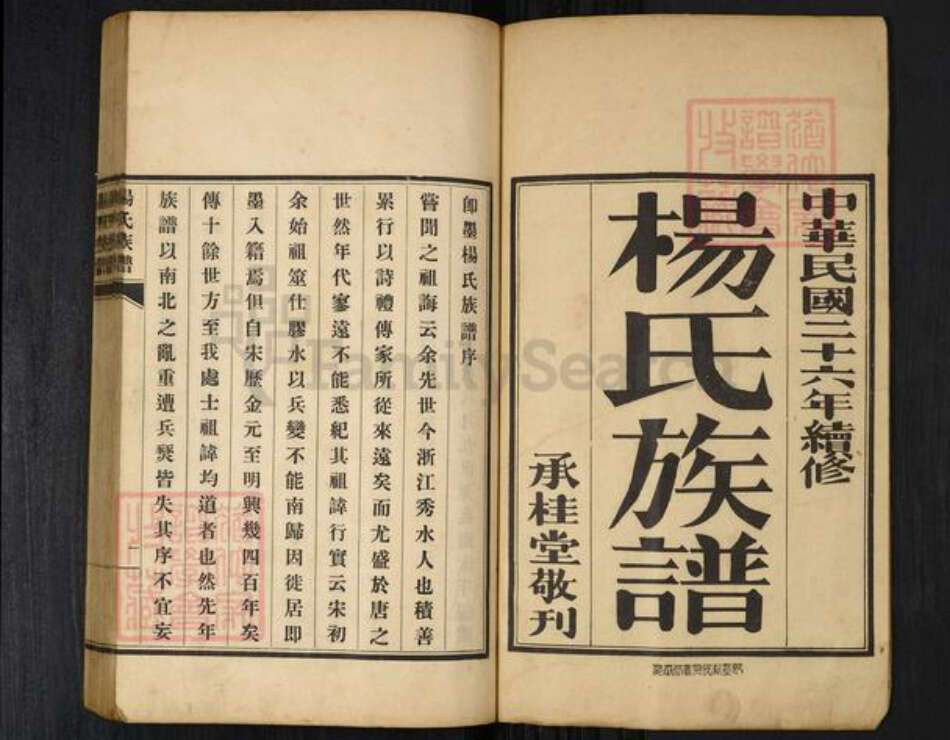 中華民國二十六年續修
楊氏族譜
承桂堂敬刊
卽墨楊氏族譜序
嘗聞之祖誨云余先世今浙江秀水人也積善
累行以詩禮傳家所從來遠矣而尤盛於唐之
世然年代寥遠不能悉紀其祖諱行實云宋初
余始祖筮仕膠水以兵變不能南歸因徙居卽
墨入籍焉但自宋歷金元至明興幾四百年矣
傳十餘世方至我處士祖諱均道者也然先年
族譜以南北之亂重遭兵燹皆失其序不宜妄
楊氏族譜
一
FamilySearch